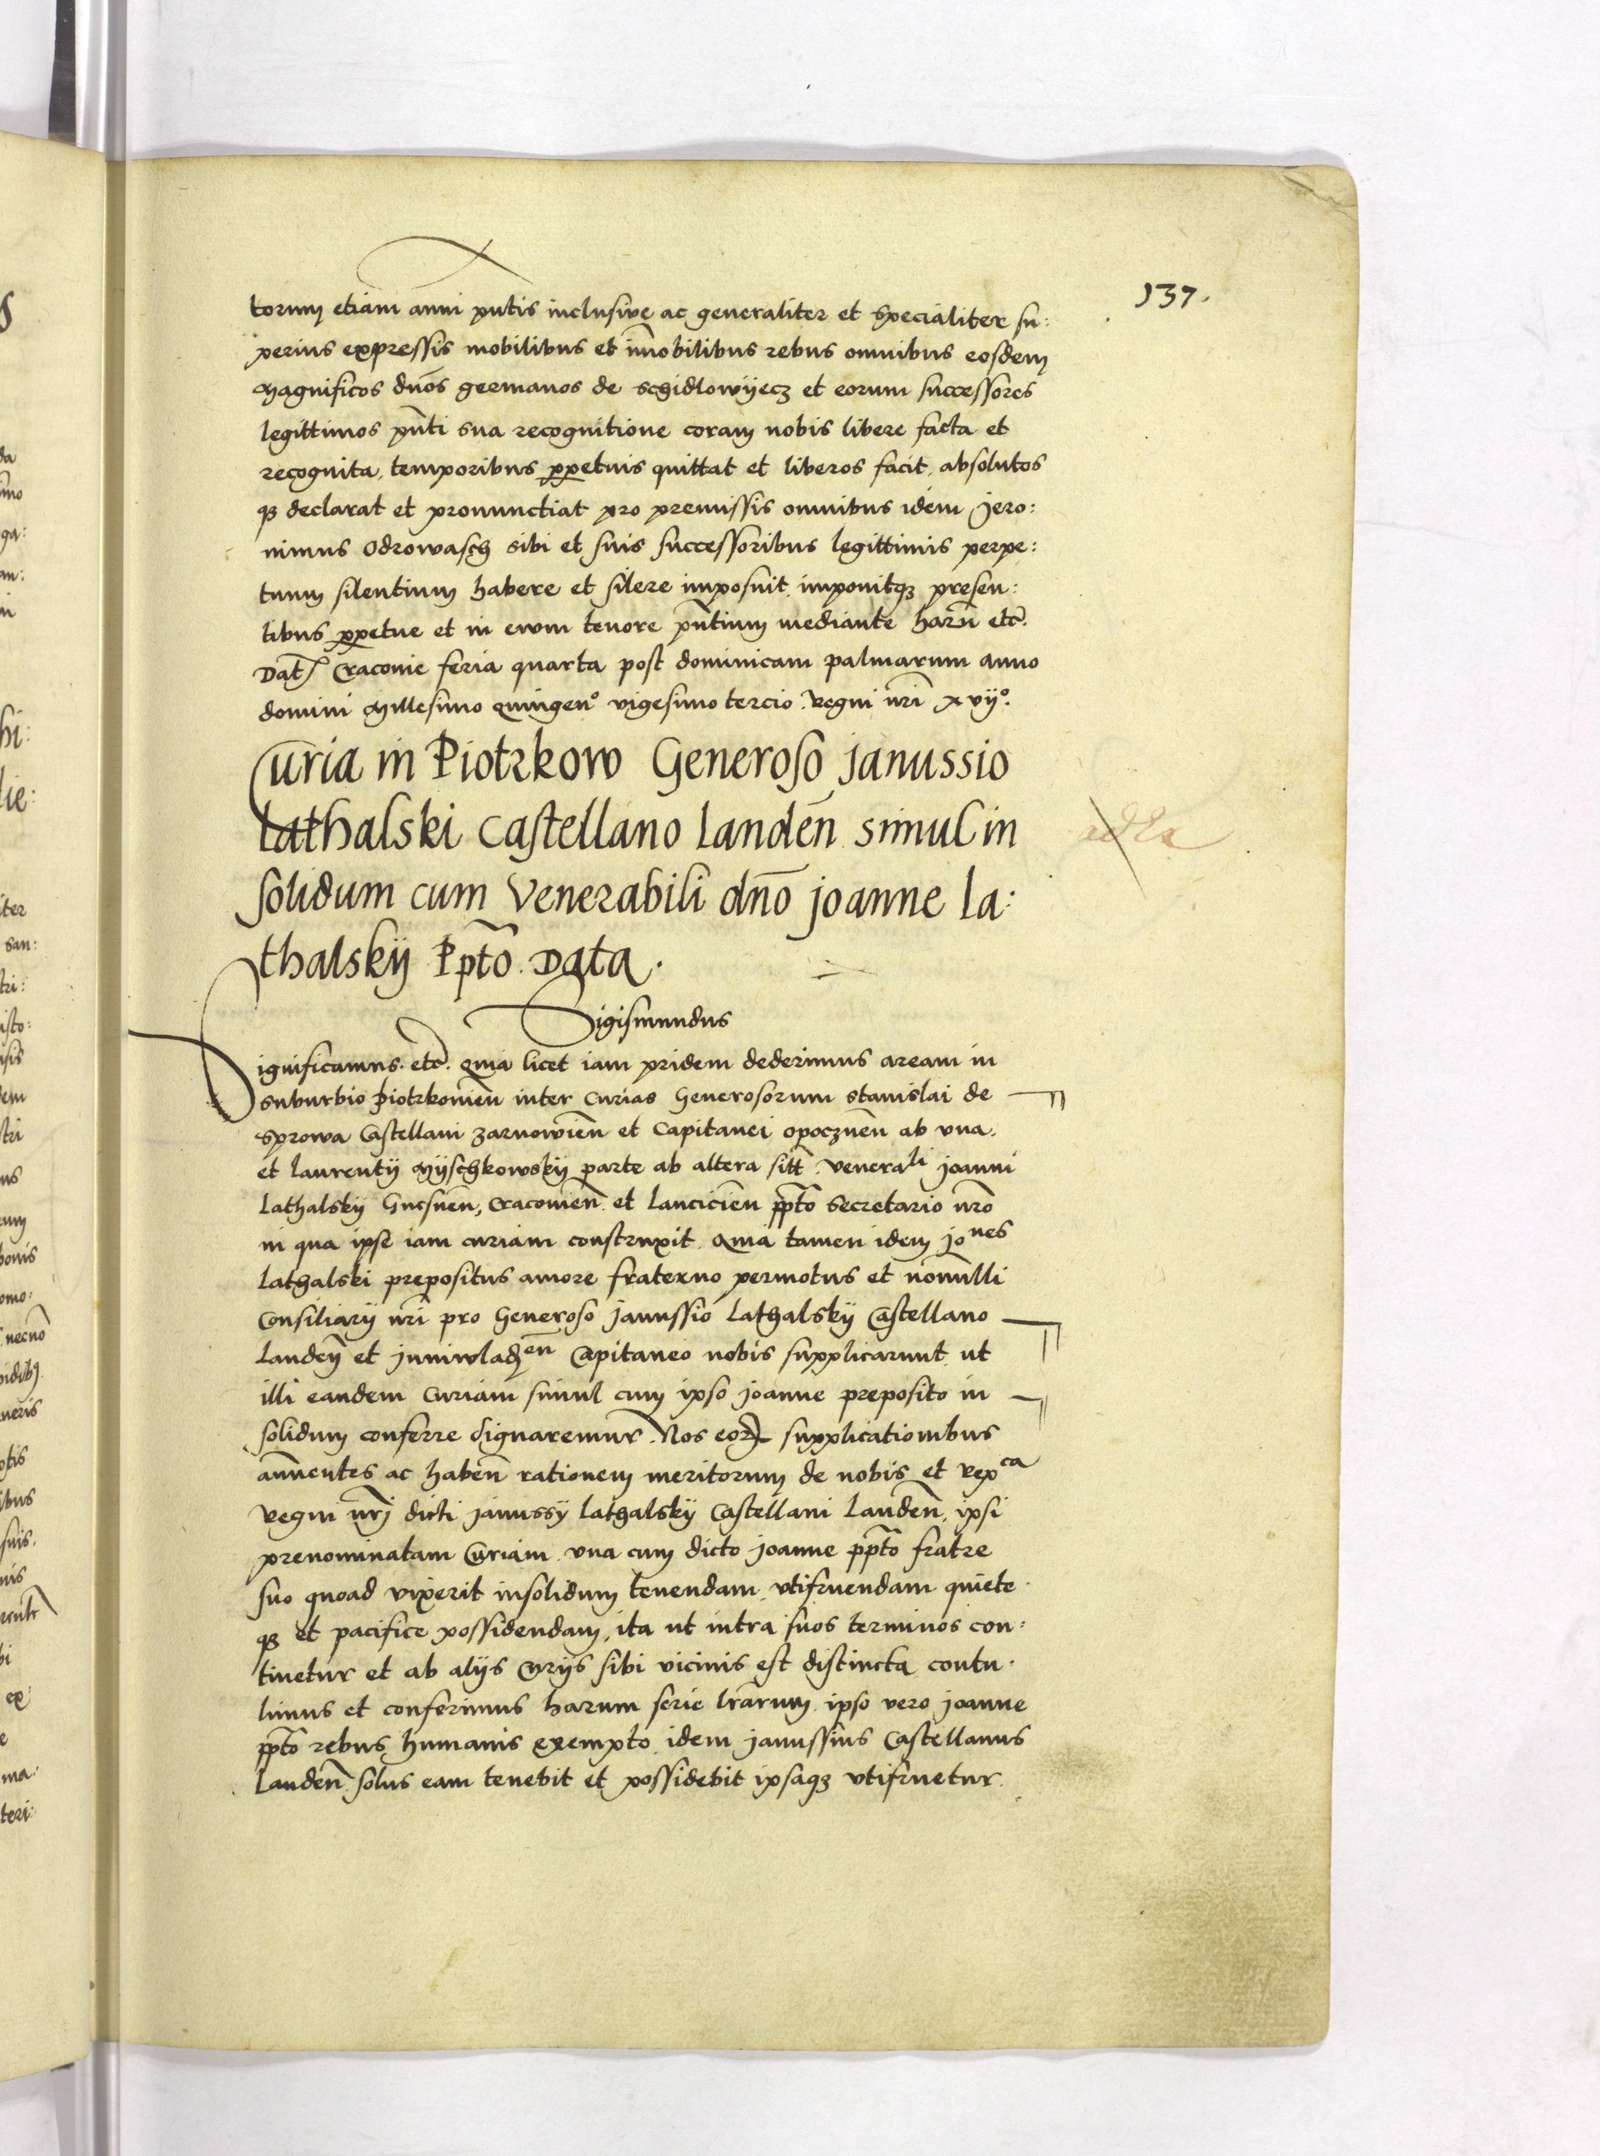 137.
torum etiam anni pntis inclusive ac generaliter et specialiter su:
perius expressis mobilibus et imobilibus rebus omnibus eosdem
Magnificos dnos germanos de Schidlowyecz et eorum successores
legittimos pnti sua recognitione coram nobis libere facta et
recognita, temporibus ppetuis quittat et liberos facit, absolutos
q3 declarat et pronunctiat pro premissis omnibus idem Jero:
nimus Odrowasch sibi et suis successoribus legittimis perpe:
tuum silentium habere et silere imposuit imponitq3 presen:
tibus ppetue et in evum tenore pntium mediante harū etc.
Dat Cracovie feria quarta post dominicam palmarum anno
domini Millesimo quingen° vigesimo tercio. Regni nri xvij°.
Curia in Piotrkow Generoso Janussio
Lathalski Castellano Landen̄ simul in
solidum cum Venerabili dno Joanne La:
thalskij Ppto Data.
Sigismundus
Significamus. etc. Quia licet iam pridem dederimus aream in
suburbio Piotrkovien̄ inter Curias Generosorum Stanislai de
Sprowa Castellani Zarnowien̄ et Capitanei Opocznen̄ ab una,
et Laurentij Myschkowskij parte ab altera sitt. Venerali Joanni
Lathalskij Gnesnen̄, Cracovien̄ et Lancicien̄ ppto Secretario nro
in qua ipse iam curiam construxit. Quia tamen idem Jones
Lathalski prepositus amore fraterno permotus et nonulli
Consiliarij nri pro Generoso Janussio Lathalskij Castellano
Landen̄ et Juniwladjen Capitaneo nobis supplicarunt ut
illi eandem Curiam simul cum ipso Joanne preposito in
solidum conferre dignaremur. Nos eor supplicationibus
annuentes ac haben̄ rationem meritorum de nobis et Repca
Regni nrj dicti Janussij Lathalskij Castellani Landen̄, ipsi
prenominatam Curiam una cum dicto Joanne ppto fratre
suo quoad vixerit insolidum tenendam, utifruendam quiete
q3 et pacifice possidendam, ita ut intra suos terminos con:
tinetur et ab alijs Curijs sibi vicinis est distincta contu:
limus et conferimus harum serie lrarum, ipso vero Joanne
ppto rebus humanis exempto, idem Janussius Castellanus
Landen̄ solus eam tenebit et possidebit ipsaq3 utifruetur.